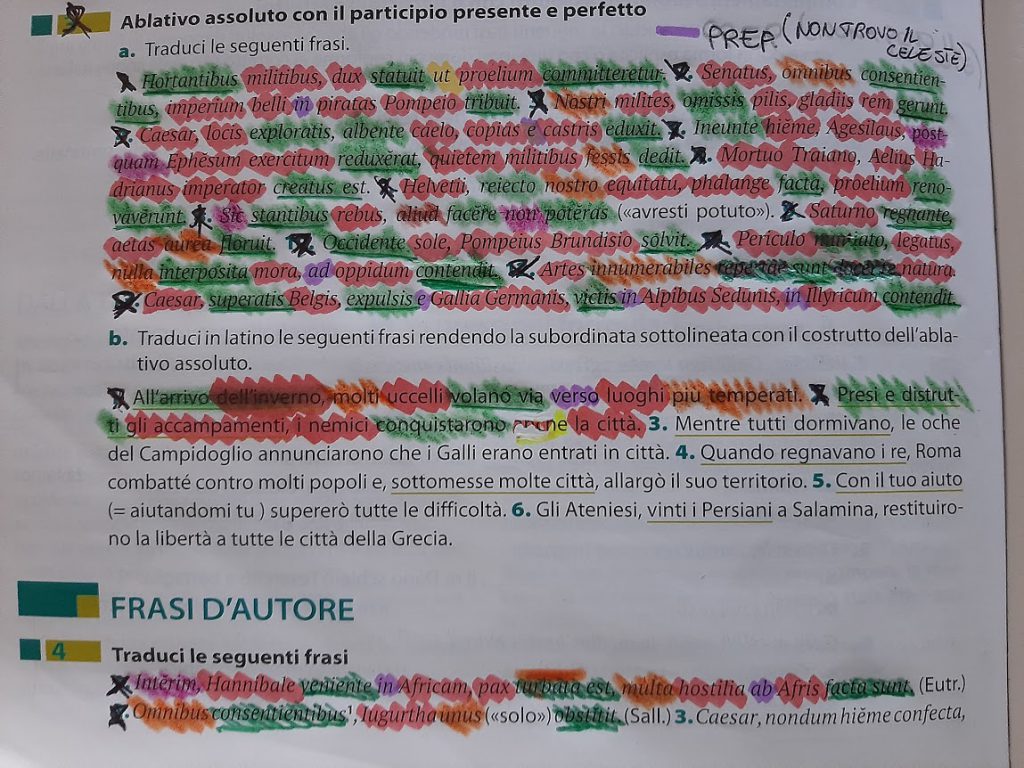 Ablativo assoluto con il participio presente e perfetto
PREP. (NON TROVO IL
CELESTE)
a. Traduci le seguenti frasi.
Hortantibus militibus, dux statuit ut proelium committeretur. Senatus, omnibus consentien-
tibus, imperium belli in piratas Pompeio tribuit. Nostri milites, omissis pilis, gladiis rem gerunt.
Caesar, locis exploratis, albente caelo, copias e castris eduxit. Ineunte hiĕme, Agesilaus, post-
quam Ephĕsum exercitum reduxĕrat, quietem militibus fessis dedit. Mortuo Traiano, Aelius Ha-
drianus imperator creatus est. Helvetii, reiecto nostro equitatu, phalange facta, proelium reno-
vavērunt. Sic stantibus rebus, aliud facĕre non potĕras («avresti potuto»). Saturno regnante,
aetas aurea floruit. Occidente sole, Pompeius Brundisio solvit. Periculo nuntiato, legatus,
nulla interposĭta mora, ad oppidum contendit. Artes innumerabiles repertae sunt docente natura.
Caesar, superatis Belgis, expulsis e Gallia Germanis, victis in Alpibus Sedunis, in Illyricum contendit.
b. Traduci in latino le seguenti frasi rendendo la subordinata sottolineata con il costrutto dell'abla-
tivo assoluto.
All'arrivo dell'inverno, molti uccelli volano via verso luoghi più temperati. Presi e distrut-
ti gli accampamenti, i nemici conquistarono anche la città. 3. Mentre tutti dormivano, le oche
del Campidoglio annunciarono che i Galli erano entrati in città. 4. Quando regnavano i re, Roma
combatté contro molti popoli e, sottomesse molte città, allargò il suo territorio. 5. Con il tuo aiuto
(= aiutandomi tu ) supererò tutte le difficoltà. 6. Gli Ateniesi, vinti i Persiani a Salamina, restituiro-
no la libertà a tutte le città della Grecia.
FRASI D'AUTORE
4 Traduci le seguenti frasi
Intĕrim, Hannibale veniente in Africam, pax turbata est, multa hostilia ab Afris facta sunt. (Eutr.)
Omnibus consentientibus¹, Iugurtha unus («solo») obstitit. (Sall.) 3. Caesar, nondum hiĕme confecta,